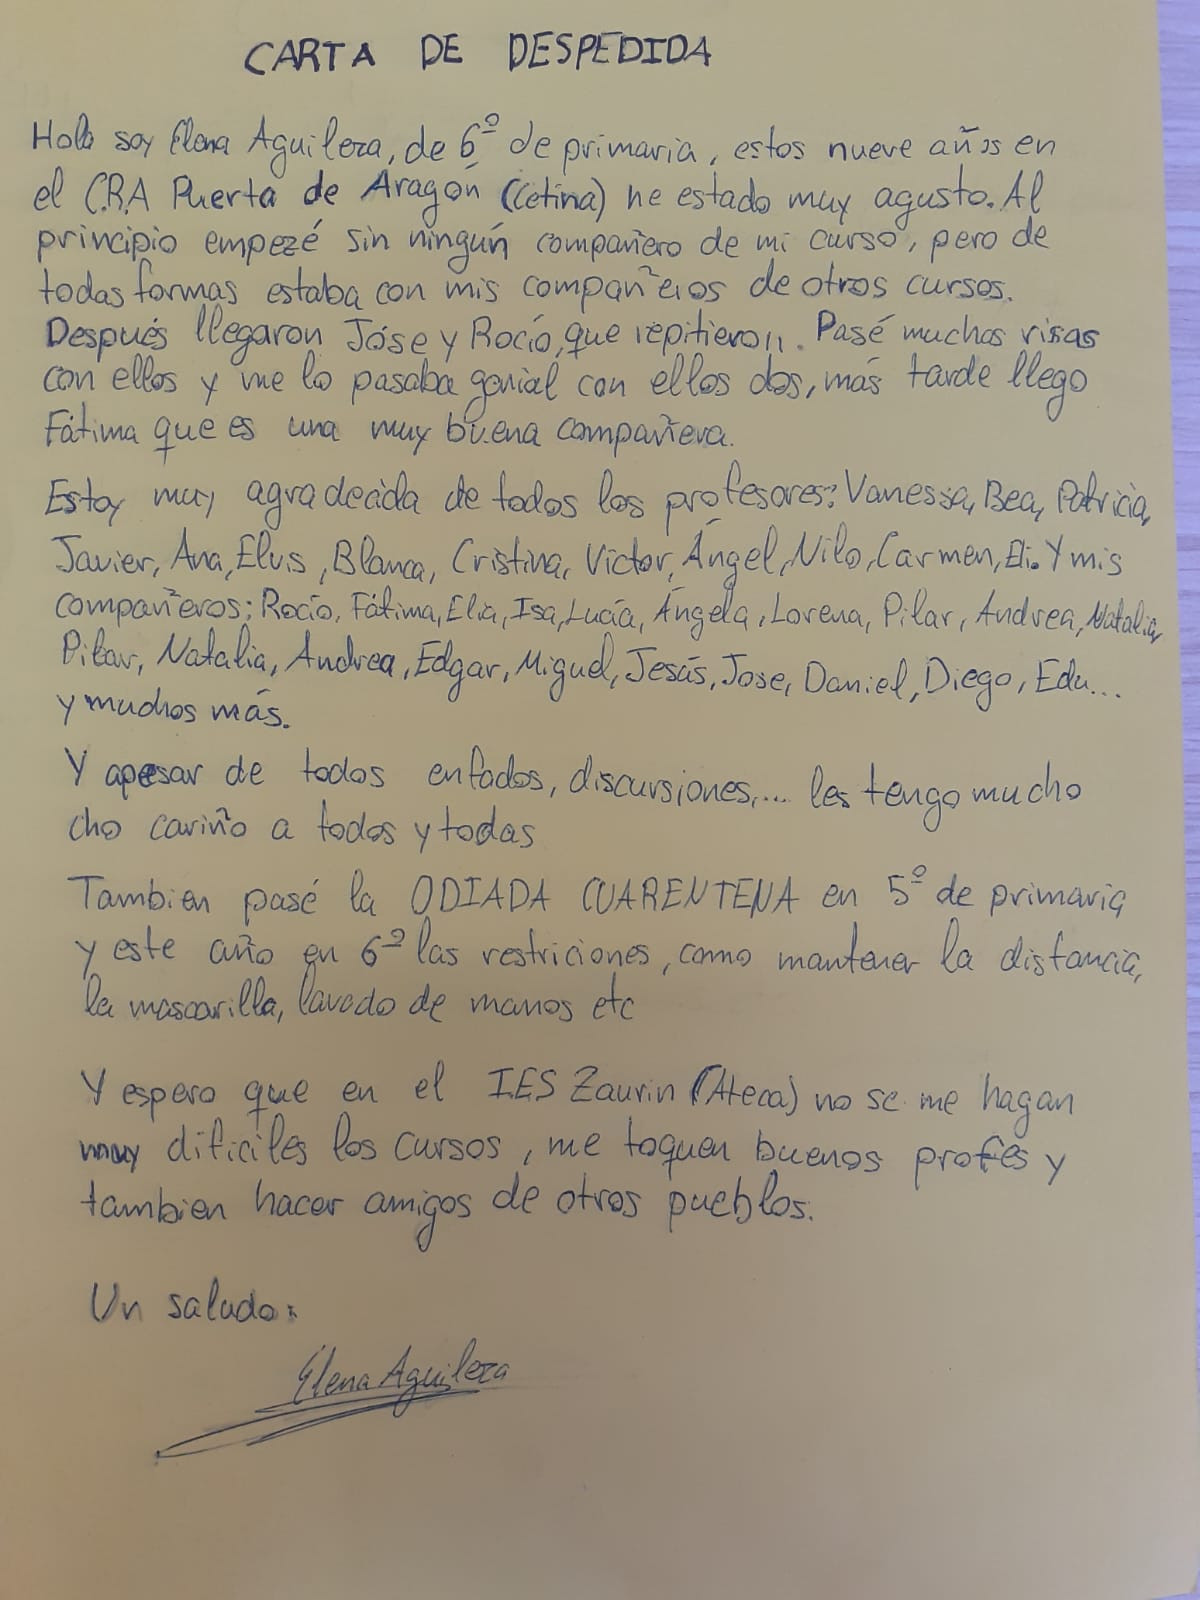 CARTA DE DESPEDIDA
Hola soy Elena Aguilera, de 6º de primaria, estos nueve años en
el C.R.A Puerta de Aragón (Cetina) he estado muy agusto. Al
principio empezé sin ningún compañero de mi curso, pero de
todas formas estaba con mis compañeros de otros cursos.
Después llegaron Jóse y Rocío, que repitieron. Pasé muchas risas
con ellos y me lo pasaba genial con ellos dos, más tarde llego
Fátima que es una muy buena compañera.
Estoy muy agradecida de todos los profesores: Vanessa, Bea, Patricia,
Javier, Ana, Elvis, Blanca, Cristina, Víctor, Ángel, Nilo, Carmen, Eli. Y mis
compañeros: Rocío, Fátima, Elia, Isa, Lucía, Ángela, Lorena, Pilar, Andrea, Natalia,
Pilar, Natalia, Andrea, Edgar, Miguel, Jesús, Jose, Daniel, Diego, Edu...
y muchos más.
Y apesar de todos enfados, discursiones,... les tengo mucho
cho cariño a todos y todas
Tambien pasé la ODIADA CUARENTENA en 5º de primaria
y este año en 6º las restriciones, como mantener la distancia,
la mascarilla, lavado de manos etc
Y espero que en el I.E.S Zaurin (Ateca) no se me hagan
muy dificiles los cursos, me toquen buenos profes y
tambien hacer amigos de otros pueblos.
Un saludo:
Elena Aguilera